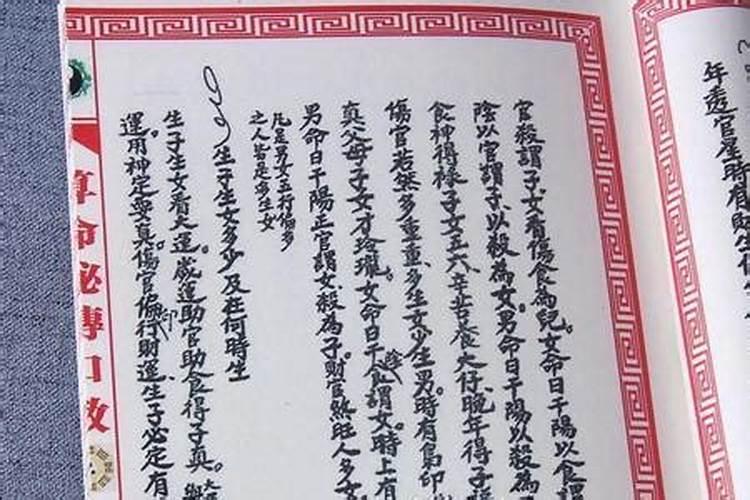 年透官星時有財生
官殺謂子女看傷食為兒。女命日干陽以食謂
陰以官謂子、以殺為女。男命日干陽以殺為
食神得祿子女五六、辛苦養大仔、晚年得子
傷官若然多重重、多生女少生男。時有梟印
真父母子女才玲瓏。女命日干陰食謂女。時上有
男命日干陽正官謂女、殺為子。財官煞旺人多女
凡是男女五行偏多
之人皆是多生女
生子生女多少及在何時生
生子生女看大運。歲運助官助食得子真。
運用神定要真。傷官偏印行財運、生子必定有
算命秘傳口